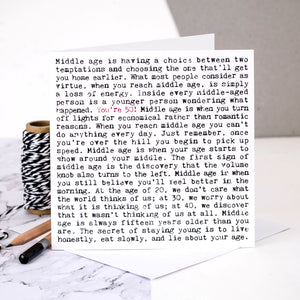 Middle age is having a choice between two
temptations and choosing the one that'll get
you home earlier. What most people consider as
virtue, when you reach middle age, is simply
a loss of energy. Inside every middle-aged
person is a younger person wondering what
happened. You're 50! Middle age is when you turn
off lights for economical rather than romantic
reasons. When you reach middle age you can't
do anything every day. Just remember, once
you're over the hill you begin to pick up
speed. Middle age is when your age starts to
show around your middle. The first sign of
middle age is the discovery that the volume
knob also turns to the left. Middle age is when
you still believe you'll feel better in the
morning. At the age of 20, we don't care what
the world thinks of us; at 30, we worry about
what it is thinking of us; at 40, we discover
that it wasn't thinking of us at all. Middle
age is always fifteen years older than you
are. The secret of staying young is to live
honestly, eat slowly, and lie about your age.